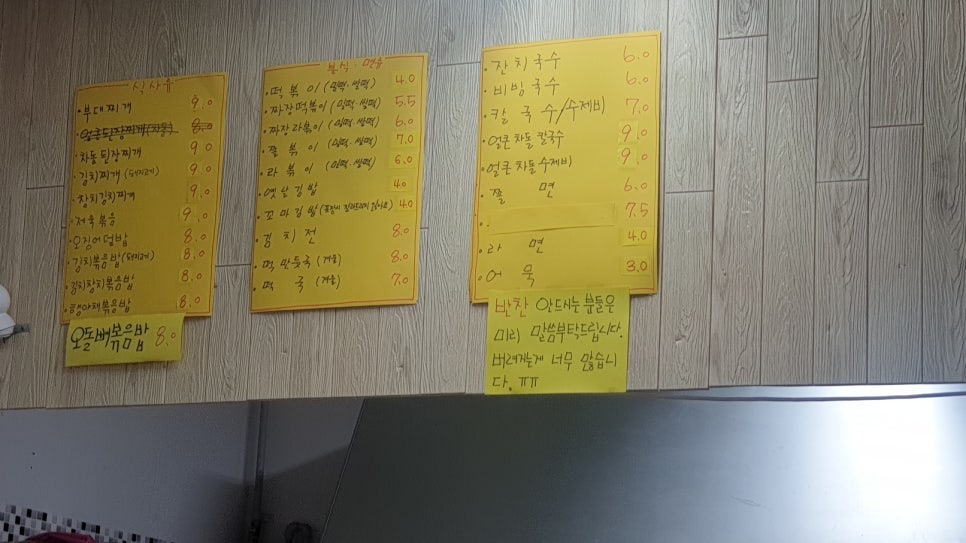 식사류
·부대찌개 9.0
·얼큰된장찌개(차돌) 8.0
·차돌된장찌개 9.0
·김치찌개(돼지고기) 9.0
·참치김치찌개 9.0
·제육볶음 9.0
·오징어덮밥 8.0
·김치볶음밥(돼지고기) 8.0
·김치참치볶음밥 8.0
·햄야채볶음밥 8.0
오돌뼈볶음밥 8.0
분식·면류
·떡볶이(밀떡·쌀떡) 4.0
·짜장떡볶이(밀떡·쌀떡) 5.5
·짜장라볶이(밀떡·쌀떡) 6.0
·쫄볶이(밀떡·쌀떡) 7.0
·라볶이(밀떡·쌀떡) 6.0
·옛날김밥 4.0
·꼬마김밥 4.0
·김치전 8.0
·떡만둣국(겨울) 8.0
·떡국(겨울) 7.0
·잔치국수 6.0
·비빔국수 6.0
·칼국수/수제비 7.0
·얼큰차돌칼국수 9.0
·얼큰차돌수제비 9.0
·쫄면 6.0
· 7.5
·라면 4.0
·어묵 3.0
반찬 안드시는분들은
미리 말씀부탁드립니다.
버려지는게 너무 많습니
다. ㅠㅠ